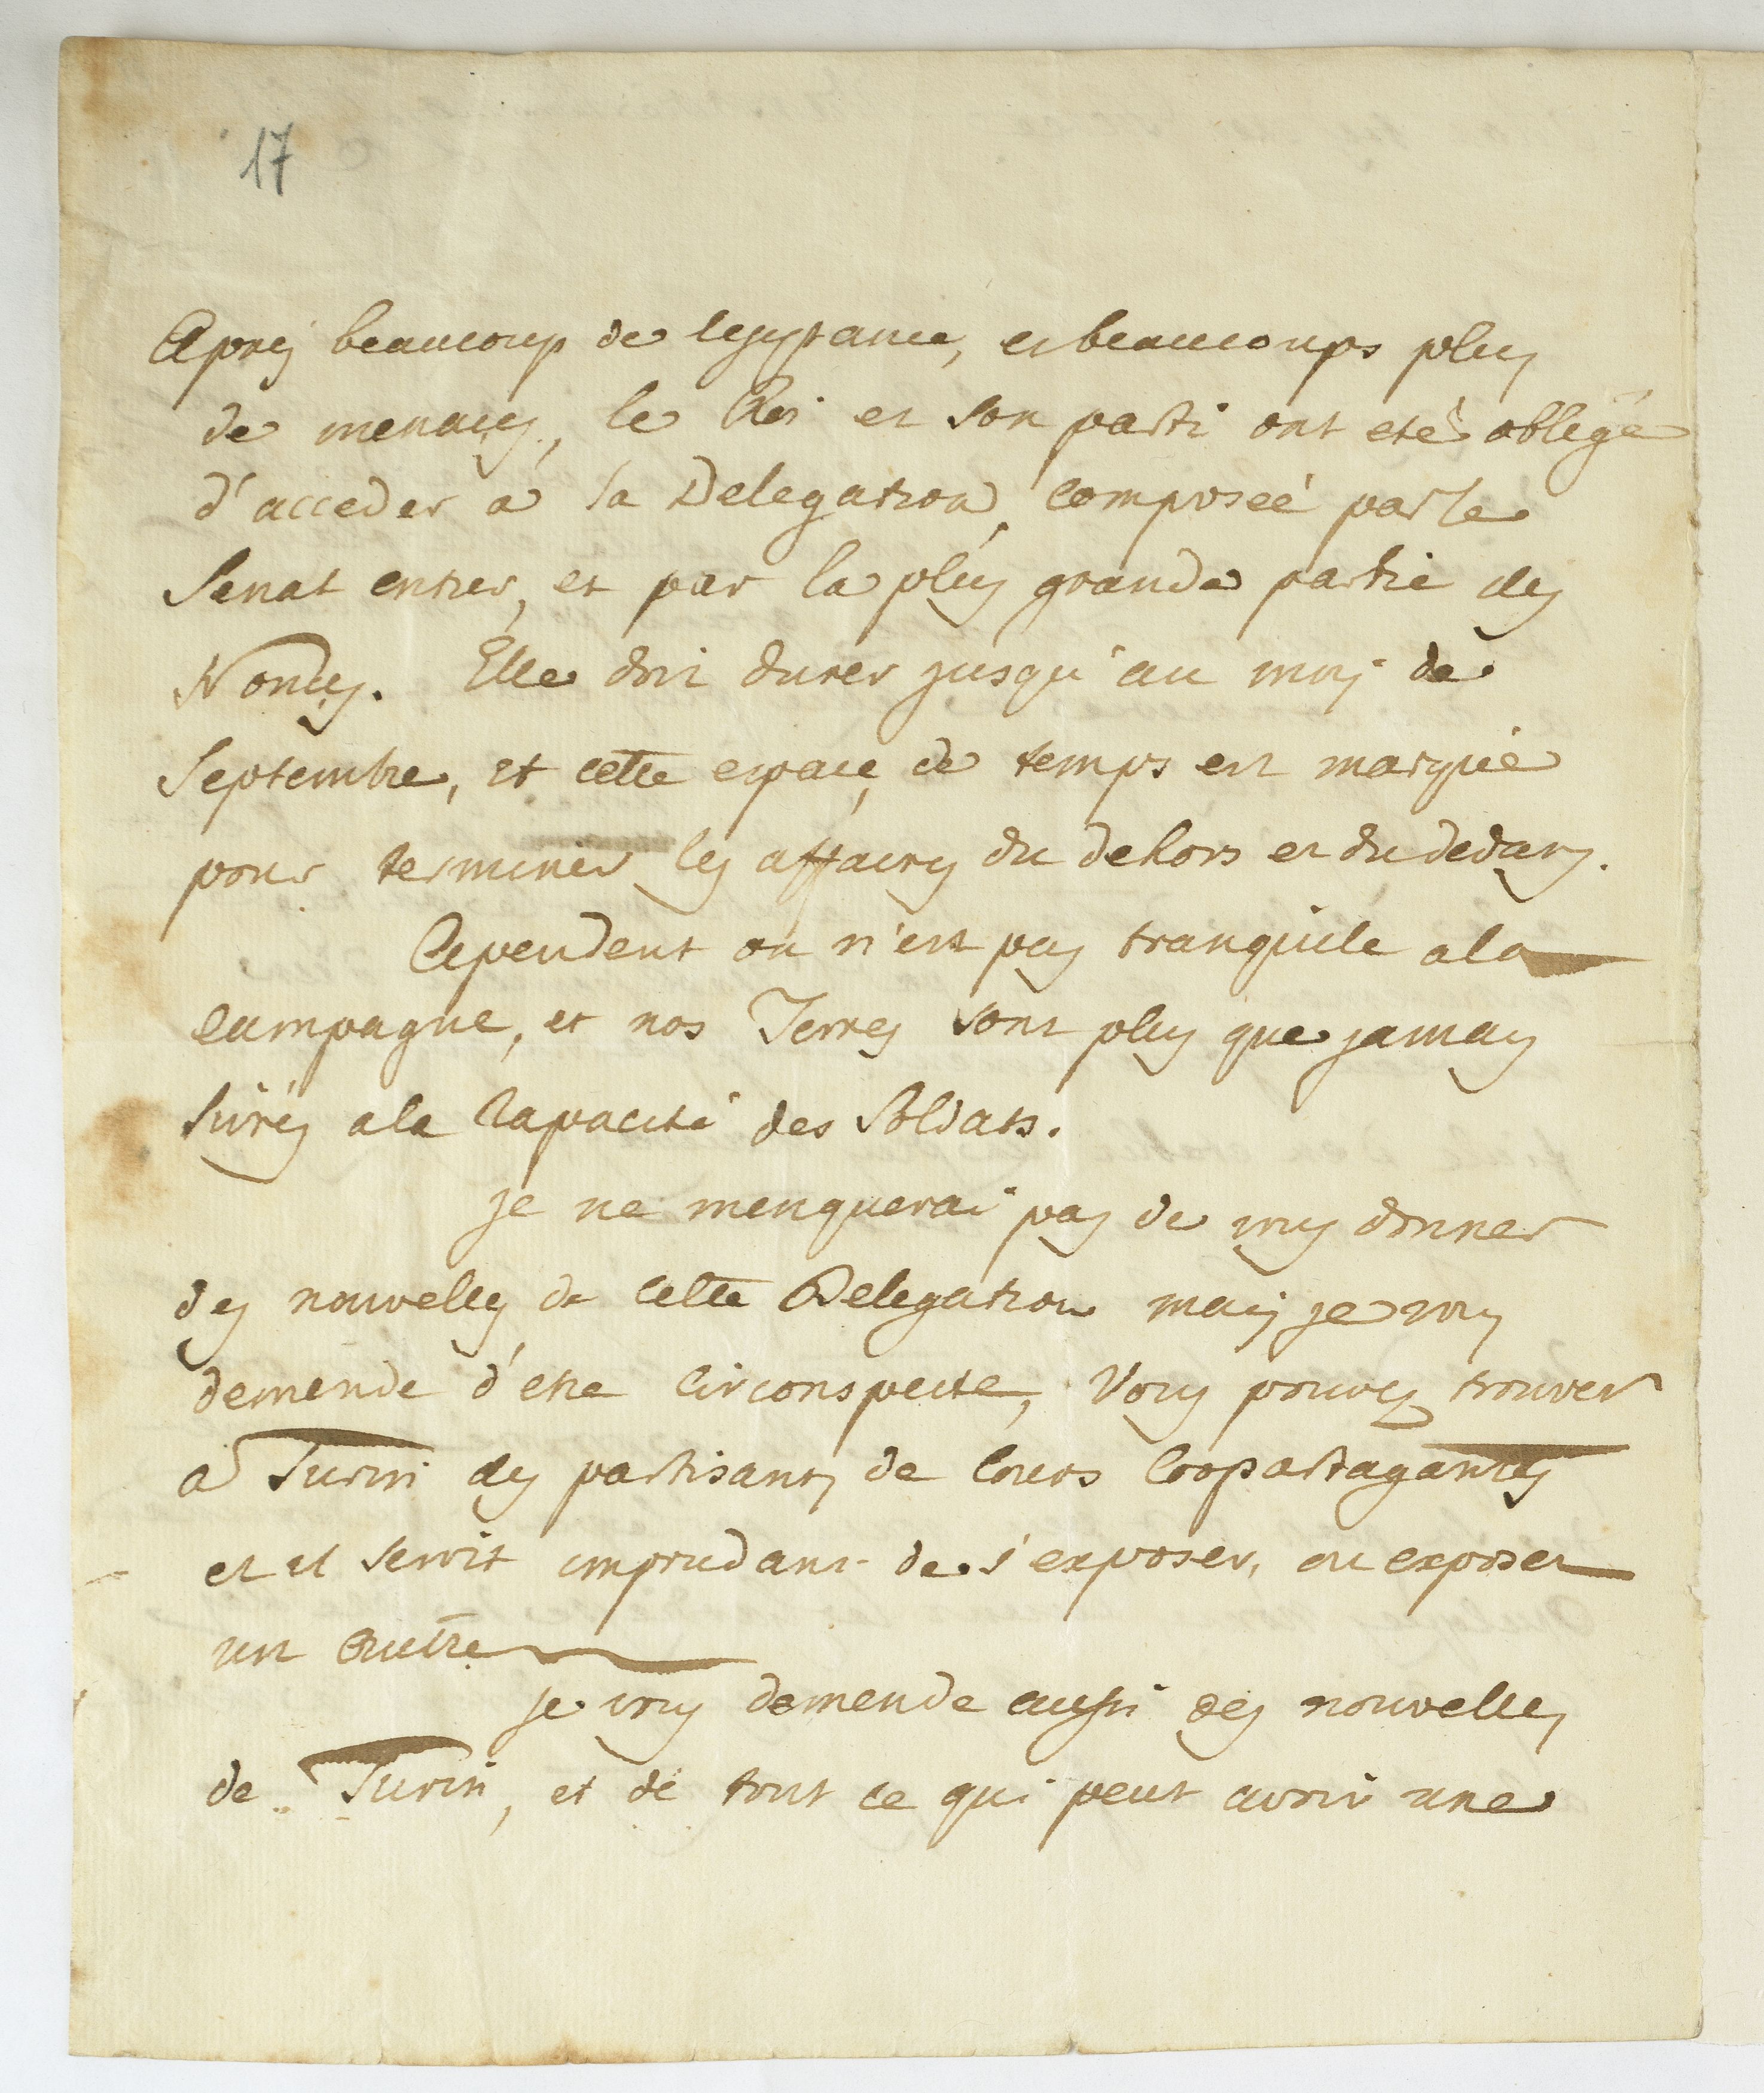 17
Après beaucoup de resystance, et beaucoups plus
de menaces, le Roi et son parti ont eté oblegé
d'acceder a la Delegation, composeé par le
Senat entier, et par la plus grande partie des
Nonces. Elle doit durer jusqu'au mois de
Septembre, et cette espace de temps est marquée
pour terminer les affaires du dehors et du dedans.
Cependent on n'est pas tranquile a la
campagne, et nos Terres sont plus que jamais
livrés a la rapacité des Soldats.
je ne menquerai pas de vous donner
des nouvelles de cette Delegation mais je vous
demende d'etre circonspecte, Vous pouvez trouver
a Turin des partisans de cours coopartagantes
et il seroit imprudant de s'exposer, ou exposer
un autre
je vous demende aussi des nouvelles
de Turin, et de tout ce qui peut avoir une